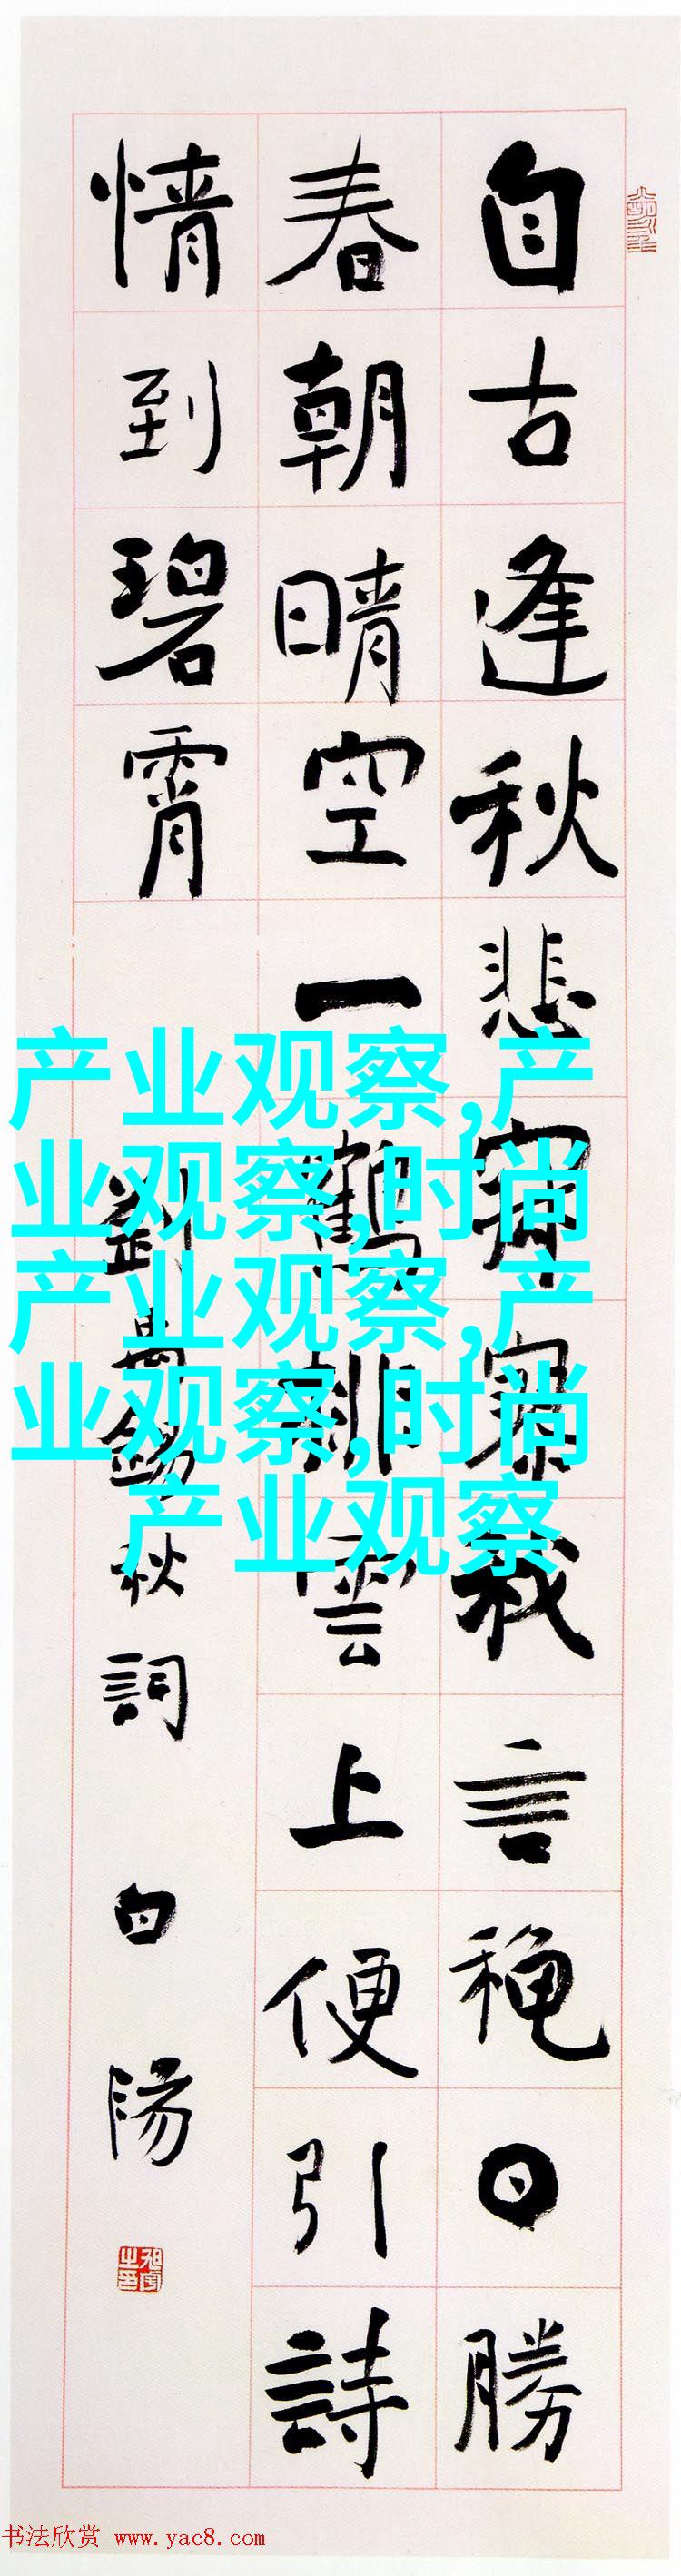 自古逢秋悲寂寥我言穐日勝
春朝晴空一鶴排雲上便引詩
情到碧霄
劉禹錫秋詞 白陽
产业观察,产
业观察,时尚
产业观察,产
业观察,时尚
产业观察
书法欣赏 www.yac8.com